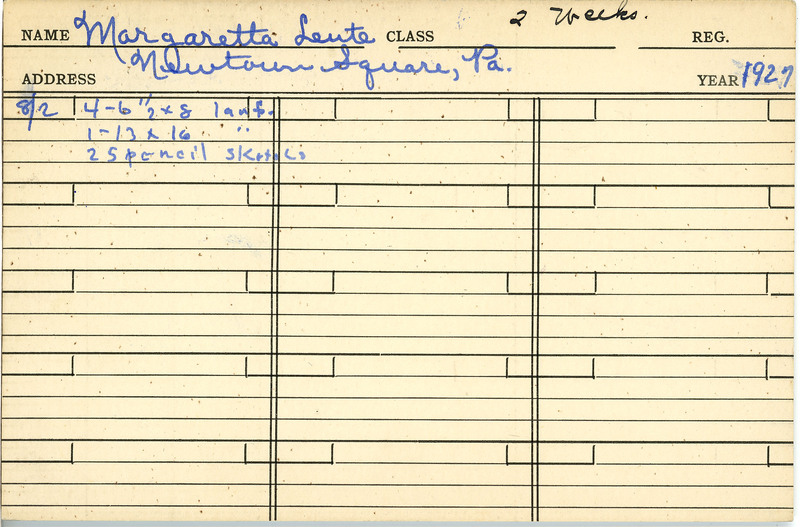 NAME Margaretta Leute CLASS 2 Weeks. REG.
ADDRESS Newtown Square, Pa. YEAR 1927
8/2 4-6 1/2 x 8 land.
1-13 x 16 "
25 pencil sketches